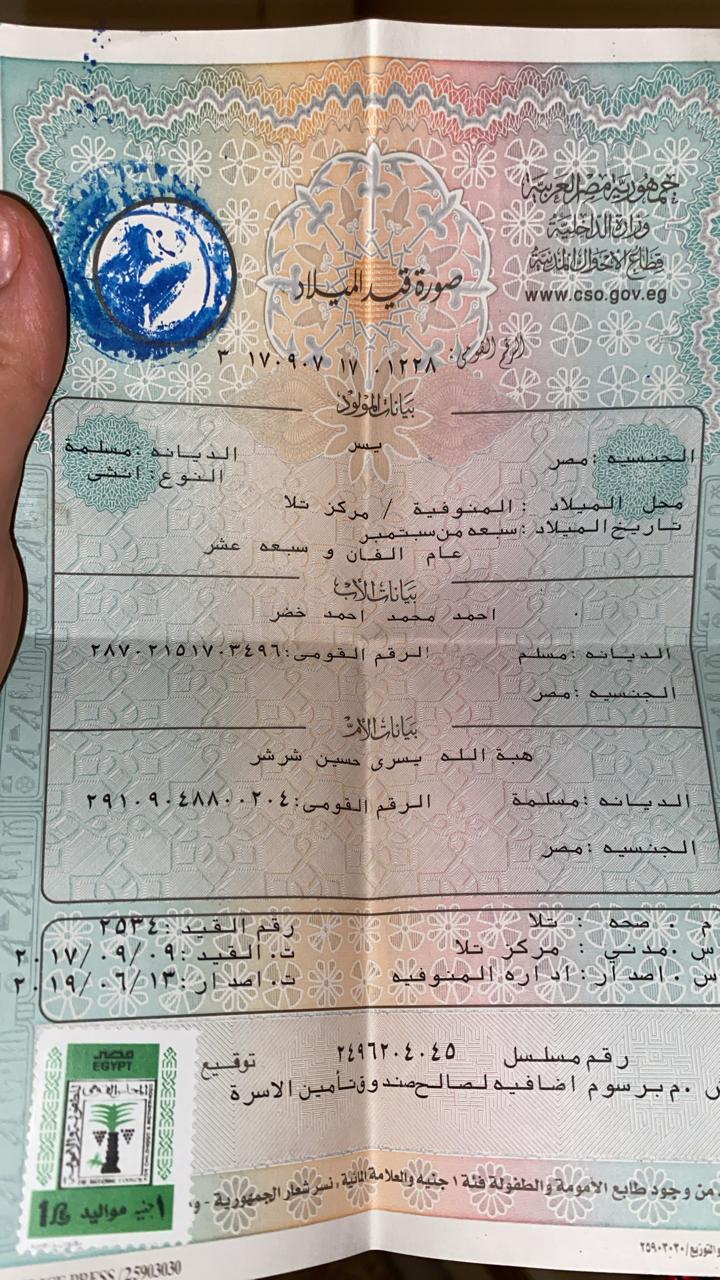 جمهورية مصر العربية
وزارة الداخلية
قطاع الأحوال المدنية
www.cso.gov.eg
صورة قيد الميلاد
الرقم القومى: ٣ ١٧٠٩٠٧ ١٧ ٠١٢٢٨
بيانات المولود
يسر
الجنسيه : مصر
الديانه : مسلمة
النوع : انثى
محل الميلاد : المنوفية / مركز تلا
تاريخ الميلاد : سبعه من سبتمبر
عام الفان و سبعه عشر
بيانات الأب
احمد محمد احمد خضر
الديانه : مسلم الرقم القومى : ٢٨٧٠٢١٥١٧٠٣٤٩٦
الجنسيه : مصر
بيانات الأم
هبة الله يسرى حسين شرشر
الديانه : مسلمة الرقم القومى : ٢٩١٠٩٠٤٨٨٠٠٢٠٤
الجنسيه : مصر
م . صحه : تلا رقم القيد : ٢٥٣٤
س . مدني : مركز تلا ت . القيد : ٢٠١٧/٠٩/٠٩
س . اصدار : اداره المنوفيه ت . اصدار : ٢٠١٩/٠٦/١٣
رقم مسلسل ٢٤٩٦٢٠٤٠٤٥ توقيع
.م برسوم اضافيه لصالح صندوق تأمين الاسرة
مصر
EGYPT
١ جنيه مواليد 1£
من وجود طابع الأمومة والطفولة فئة ١ جنيه والعلامة المائية ، نسر شعار الجمهورية -
والتوزيع/٢٥٩٠٣٠٣٠
PRESS /25903030